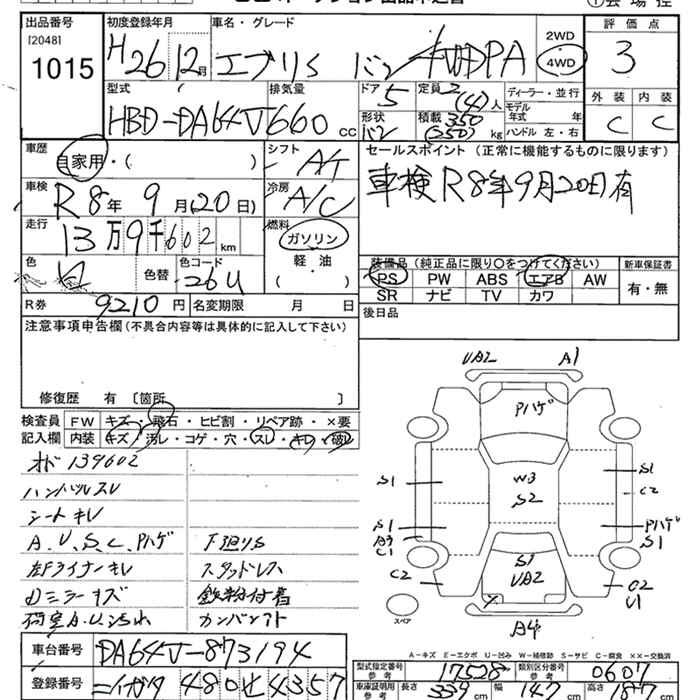 出品番号 初度登録年月 車名・グレード 2WD 評価点
[2048]
1015 H26年12月 エブリイ バン 4WD PA 4WD 3
型式 排気量 ドア 定員 ディーラー・並行 外装 内装
HBD-DA64V 660cc 5 2(4)人 モデル年式 年 C C
形状 積載 ハンドル 左・右
バン 350(250)kg
車歴 シフト セールスポイント (正常に機能するものに限ります)
自家用・( ) AT 車検R8年9月20日有
車検 冷房
R8年9月(20日) A/C
走行 燃料
13万9千602km ガソリン
軽油
色 色替 色コード ( ) 装備品(純正品に限り〇をつけてください) 新車保証書
26U PS PW ABS エアB AW 有・無
R券 9210円 名変期限 月 日 SR ナビ TV カワ
注意事項申告欄(不具合内容等は具体的に記入して下さい) 後日品
修復歴 有 〔箇所 〕
検査員 FW キズ・飛石・ヒビ割・リペア跡・×要
記入欄 内装 キズ・汚レ・コゲ・穴・スレ・キレ・破レ
オド139602
ハンドルスレ
シートキレ
A、U、S、C、Pハゲ 下廻りS
左Fライナーキレ スタッドレス
Dミラーキズ 鉄粉付着
荷室A.U.汚れ
UA2 A1
Pハゲ
W3
S2
S1 S1
C2
S1 Pハゲ
A3 S1
C1
C2 S1 C2
UA2 U1
スペア
A4
A-キズ E-エクボ U-凹み W-補修跡 S-サビ C-腐食 XX-交換済
車台番号 DA64V-873194 型式指定番号 参考 17528 類別区分番号 参考 0607
登録番号 ニイガタ480せ4357 車庫証明用 参考 長さ 339cm 幅 147cm 高さ 187cm